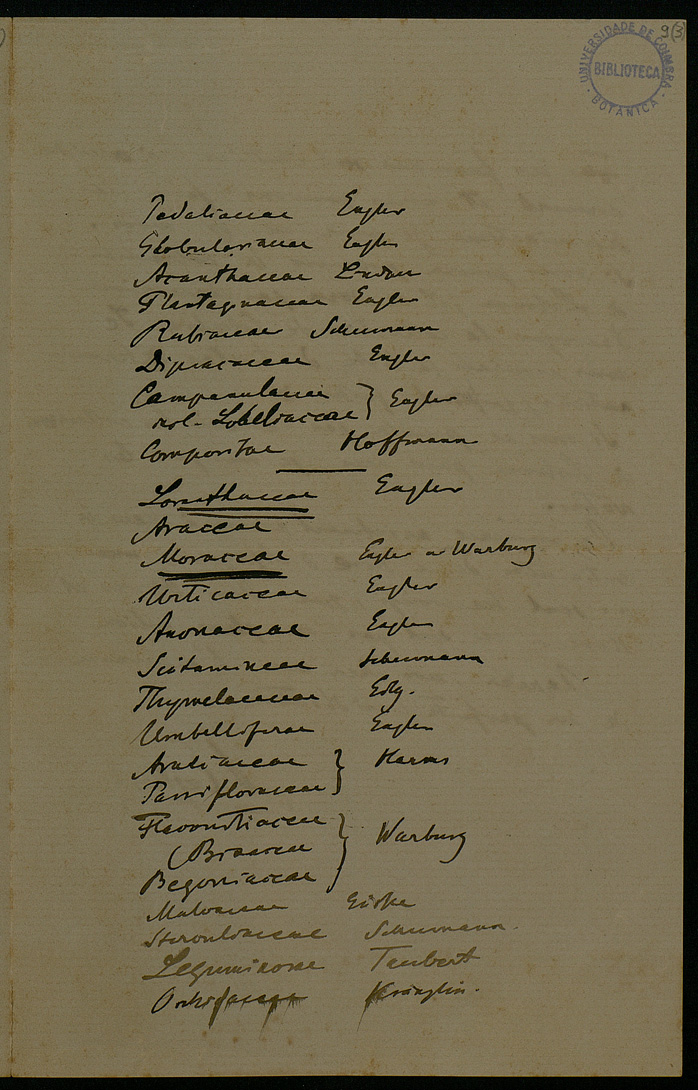 9(3)
UNIVERSIDADE DE COIMBRA
BIBLIOTECA
BOTANICA
Pedaliaceae Engler
Globulariaceae Engler
Acanthaceae Lindau
Plantaginaceae Engler
Rubiaceae Schumann
Dipsacaceae Engler
Campanulaceae } Engler
incl. Lobeliaceae
Compositae Hoffmann
Loranthaceae Engler
Araceae
Moraceae Engler u Warburg
Urticaceae Engler
Anonaceae Engler
Scitamineae Schumann
Thymelaeaceae
Umbelliferae Engler
Araliaceae } Harms
Passifloraceae
Flacourtiaceae }
(Bixaceae Warburg
Begoniaceae
Malvaceae Gürke
Sterculiaceae Schumann.
Leguminosae Taubert
Orchidaceae Kränzlin.